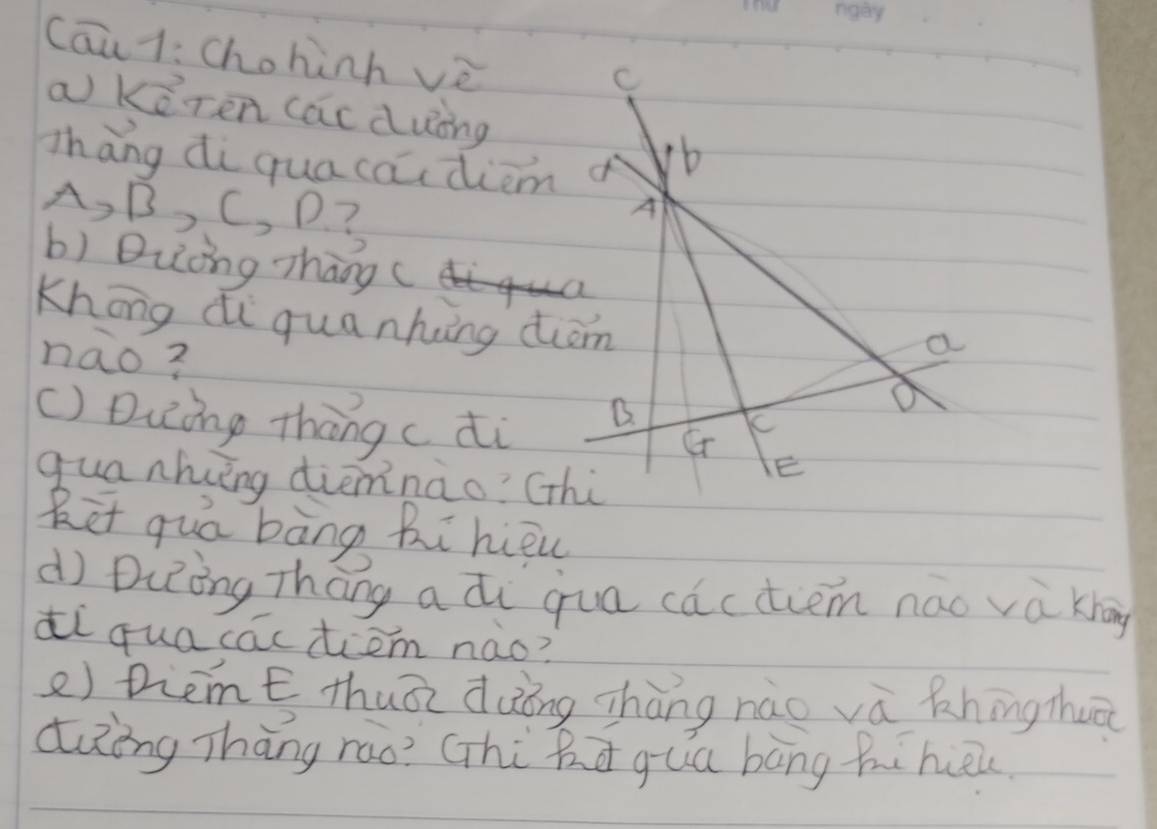 ngày
Câu 1: Cho hình vẽ
a) Kể tên các đường
thẳng đi qua các điểm
A, B, C, D?
b) Đường thẳng c
Không đi qua những điểm
nào?
c) Đường thẳng c đi
qua những điểm nào? Ghi
kết quả bằng kí hiệu
d) Đường thẳng a đi qua các điểm nào và không
đi qua các điểm nào?
e) Điểm E thuộc đường thẳng nào và không thuộc
đường thẳng nào? Ghi kết quả bằng kí hiệu.
c
b
d
A
a
D
B
C
G
E